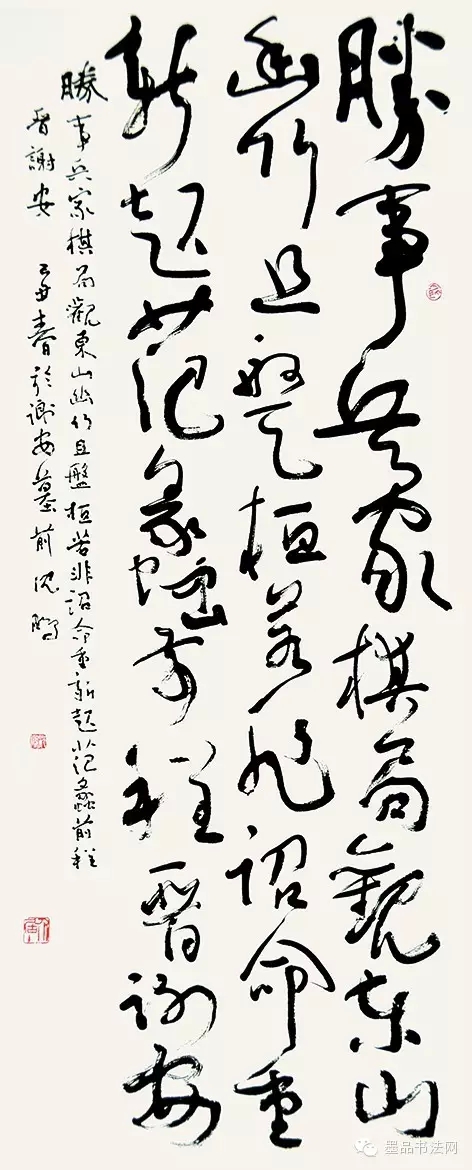 勝事兵家棋局觀東山
幽竹且盤桓若非詔命重
新起范蠡前程晋謝安
勝事兵家棋局觀東山幽竹且盤桓若非詔命重新起范蠡前程
晋謝安 春於謝安墓前沈鵬
墨品书法网